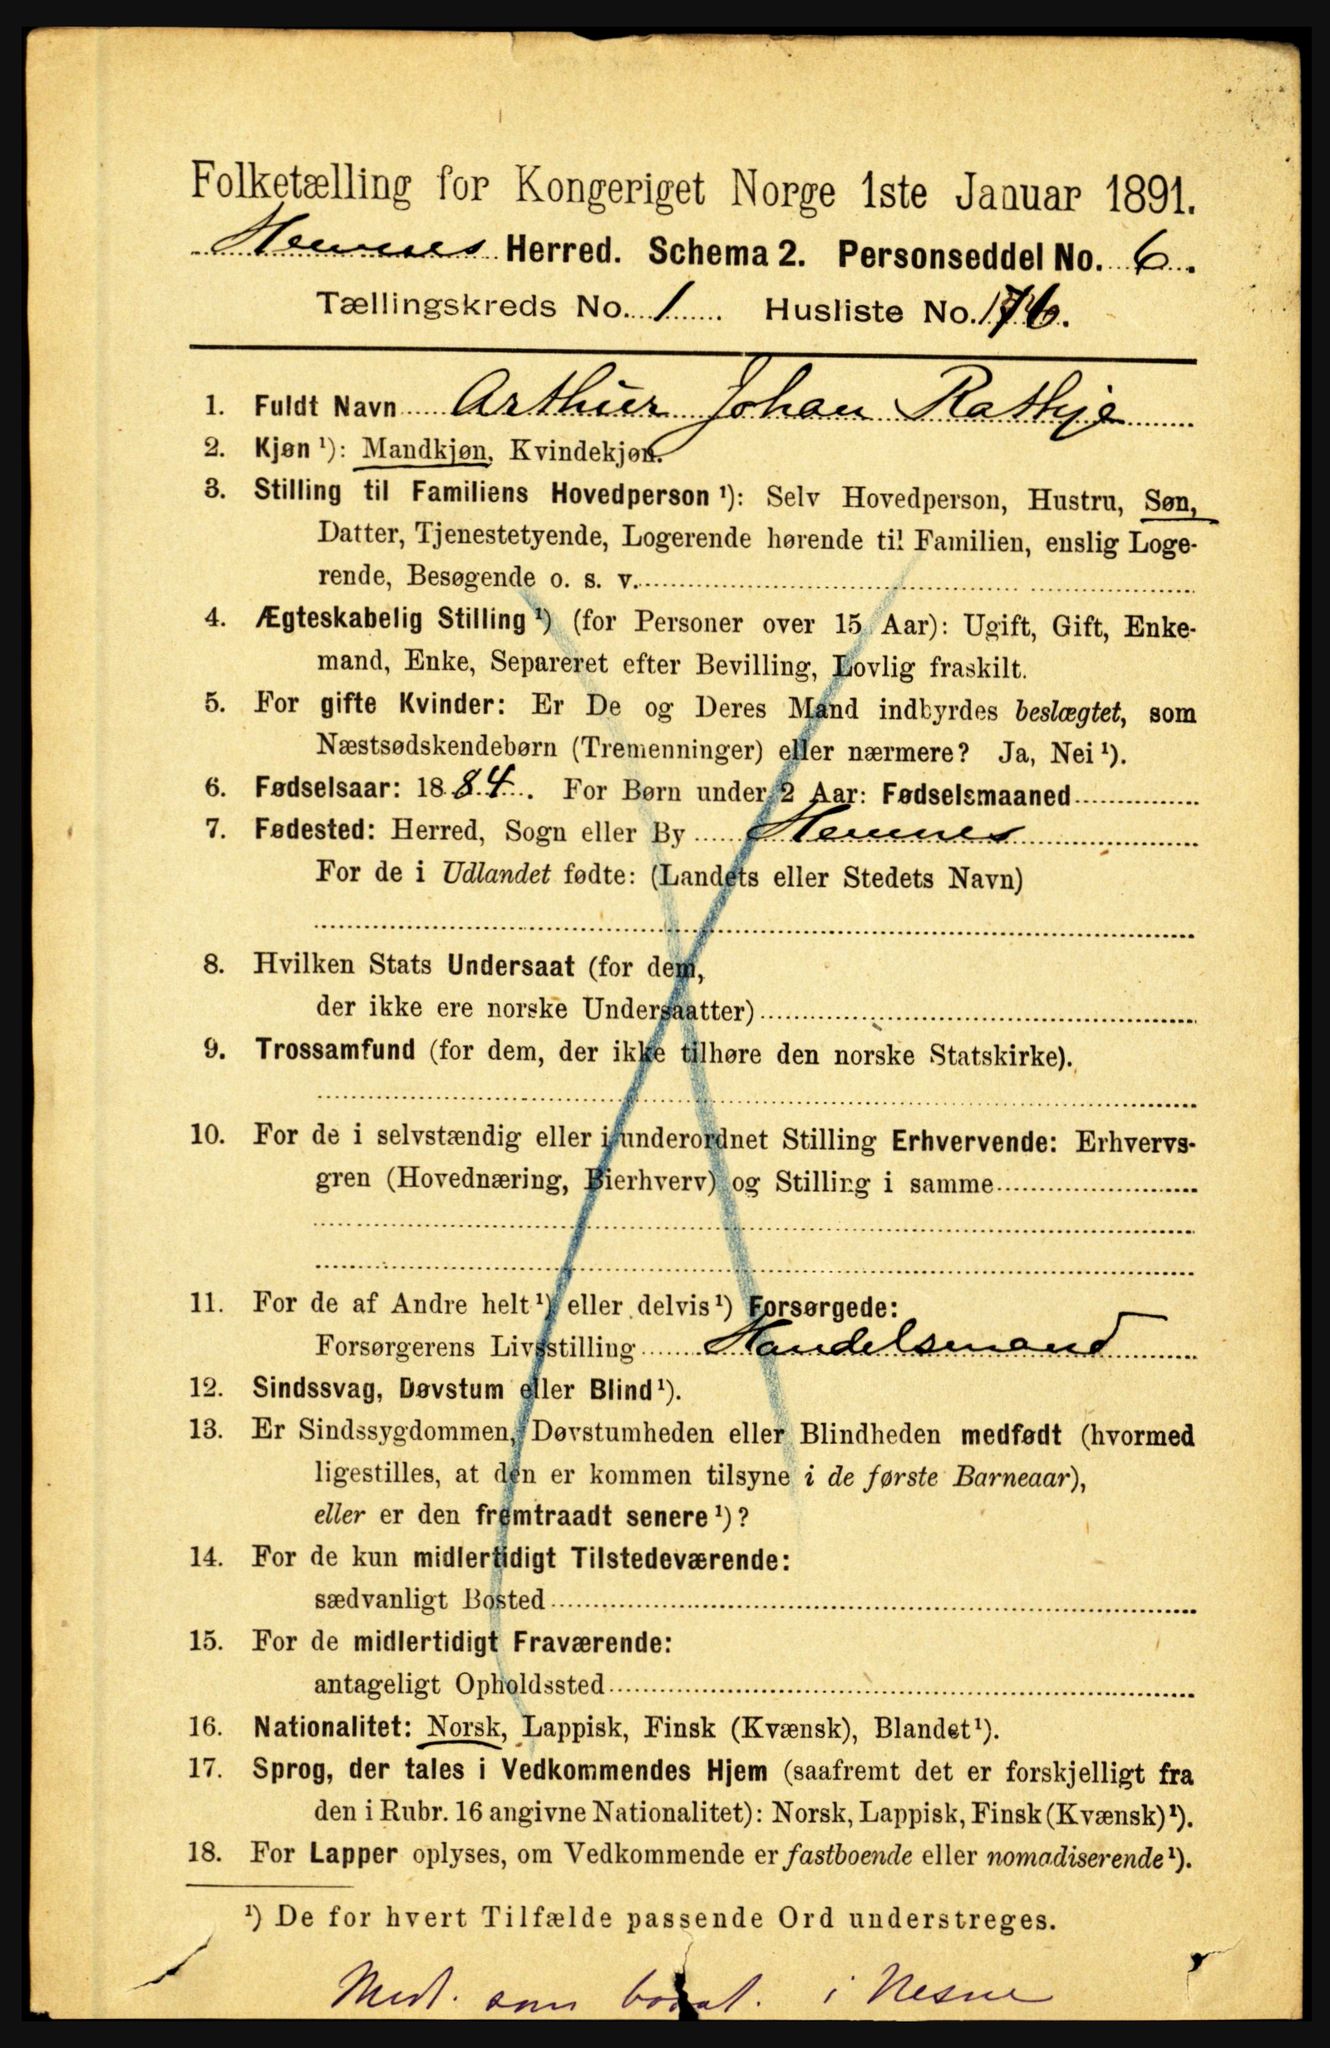 Folketælling for Kongeriget Norge 1ste Januar 1891.
Hemnes Herred. Schema 2. Personseddel No. 6.
Tællingskreds No. 1 Husliste No. 176.
1. Fuldt Navn Arthur Johan Rathje
2. Kjøn ¹): Mandkjøn, Kvindekjøn.
3. Stilling til Familiens Hovedperson ¹): Selv Hovedperson, Hustru, Søn,
Datter, Tjenestetyende, Logerende hørende til Familien, enslig Loge-
rende, Besøgende o. s. v.
4. Ægteskabelig Stilling ¹) (for Personer over 15 Aar): Ugift, Gift, Enke-
mand, Enke, Separeret efter Bevilling, Lovlig fraskilt.
5. For gifte Kvinder: Er De og Deres Mand indbyrdes beslægtet, som
Næstsødskendebørn (Tremenninger) eller nærmere? Ja, Nei ¹).
6. Fødselsaar: 1884. For Børn under 2 Aar: Fødselsmaaned
7. Fødested: Herred, Sogn eller By Hemnes
For de i Udlandet fødte: (Landets eller Stedets Navn)
8. Hvilken Stats Undersaat (for dem,
der ikke ere norske Undersaatter)
9. Trossamfund (for dem, der ikke tilhøre den norske Statskirke).
10. For de i selvstændig eller i underordnet Stilling Erhvervende: Erhvervs-
gren (Hovednæring, Bierhverv) og Stilling i samme
11. For de af Andre helt ¹) eller delvis ¹) Forsørgede:
Forsørgerens Livsstilling Handelsmand
12. Sindssvag, Døvstum eller Blind ¹).
13. Er Sindssygdommen, Døvstumheden eller Blindheden medfødt (hvormed
ligestilles, at den er kommen tilsyne i de første Barneaar),
eller er den fremtraadt senere ¹)?
14. For de kun midlertidigt Tilstedeværende:
sædvanligt Bosted
15. For de midlertidigt Fraværende:
antageligt Opholdssted
16. Nationalitet: Norsk, Lappisk, Finsk (Kvænsk), Blandet ¹).
17. Sprog, der tales i Vedkommendes Hjem (saafremt det er forskjelligt fra
den i Rubr. 16 angivne Nationalitet): Norsk, Lappisk, Finsk (Kvænsk) ¹).
18. For Lapper oplyses, om Vedkommende er fastboende eller nomadiserende ¹).
¹) De for hvert Tilfælde passende Ord understreges.
Med. som bosat. i Nesne